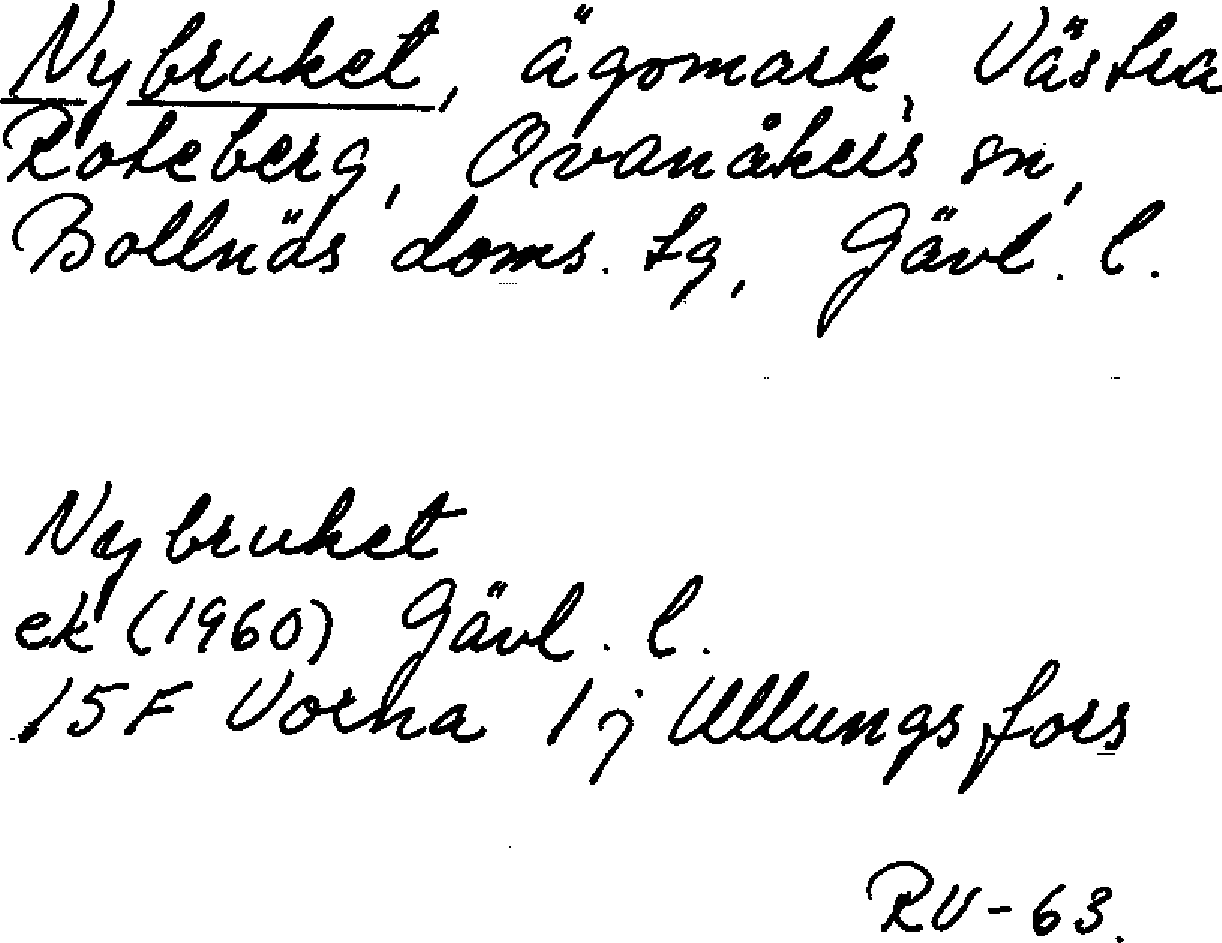 Nybruket, ägomark, Västra
Roteberg, Ovanåkers sn,
Bollnäs doms. tg, Gävl. l.
Nybruket
ek (1960) Gävl. l.
15F Vorna 1 j Ullungsfors
RV-63.